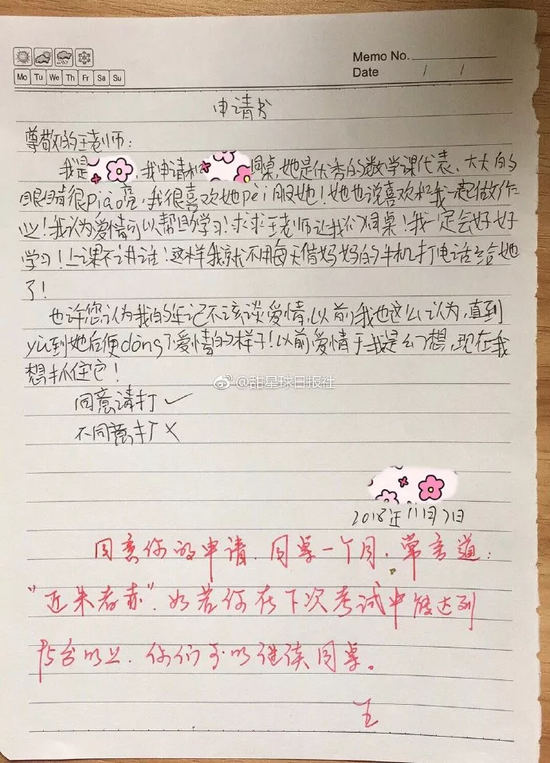 Memo No.
Mo Tu We Th Fr Sa Su
Date / /
申请书
尊敬的王老师：
我是 ，我申请和 同桌，她是优秀的数学课代表、大大的
眼睛很piāo亮，我很喜欢她pèi服她！她也说喜欢和我一起做作
业！我认为爱情可以帮助学习！求求王老师让我们同桌！我一定会好好
学习！上课不讲话！这样我就不用每天借妈妈的手机打电话给她
了！
也许您认为我的年记不该谈爱情，以前我也这么认为，直到
yù到她后便dǒng了爱情的样子！以前爱情于我是幻想，现在我
想抓住它！
同意请打✓
不同意打×
@甜星球日报社
2018年11月7日
同意你的申请，同桌一个月，常言道：
“近朱者赤”，如若你在下次考试中能达到
95分以上，你们可以继续同桌。
王